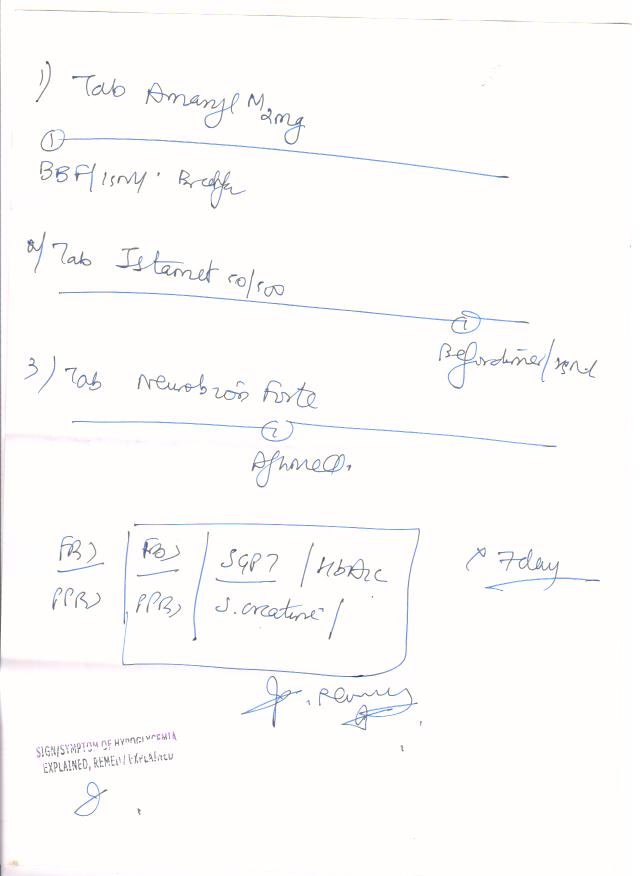 1) Tab Amaryl M 2mg
1
BBF/15mt. Breakfa
2/ Tab Istamet 50/500
1
Beforedinner/15mt
3) Tab Neurobion Forte
Afn meal.
FBS FBS SGPT / HbA1c × 7day
PPBS PPBS S. creatine /
SIGN/SYMPTOM OF HYPOGLYCEMIA
EXPLAINED, REMEDY EXPLAINED